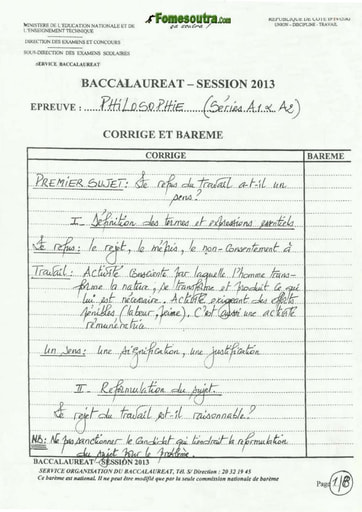 MINISTERE DE L'EDUCATION NATIONALE ET DE
L'ENSEIGNEMENT TECHNIQUE
Fomesoutra.com
ça soutra !
REPUBLIQUE DE COTE D'IVOIRE
UNION - DISCIPLINE - TRAVAIL
DIRECTION DES EXAMENS ET CONCOURS
SOUS-DIRECTION DES EXAMENS SCOLAIRES
SERVICE BACCALAUREAT
BACCALAUREAT – SESSION 2013
EPREUVE : PHILOSOPHIE (Séries A1 & A2)
CORRIGE ET BAREME
CORRIGE BAREME
PREMIER SUJET : Le refus du travail a-t-il un
sens ?
I - Définition des termes et expressions essentiels
Le refus : le rejet, le mépris, le non-consentement à
Travail : Activité consciente par laquelle l'homme trans-
forme la nature, se transforme et produit ce qui
lui est nécessaire. Activité exigeant des efforts
pénibles (labeur, peine). C'est aussi une activité
rémunératrice
Un sens : une signification, une justification
II - Reformulation du sujet
Le rejet du travail est-il raisonnable ?
NB : Ne pas sanctionner le candidat qui tiendrait la reformulation
du sujet pour le problème.
BACCALAUREAT - SESSION 2013
SERVICE ORGANISATION DU BACCALAUREAT, Tél. S/ Direction : 20 32 19 45
Ce barème est national. Il ne peut être modifié que par la seule commission nationale de barème
Page 1/8